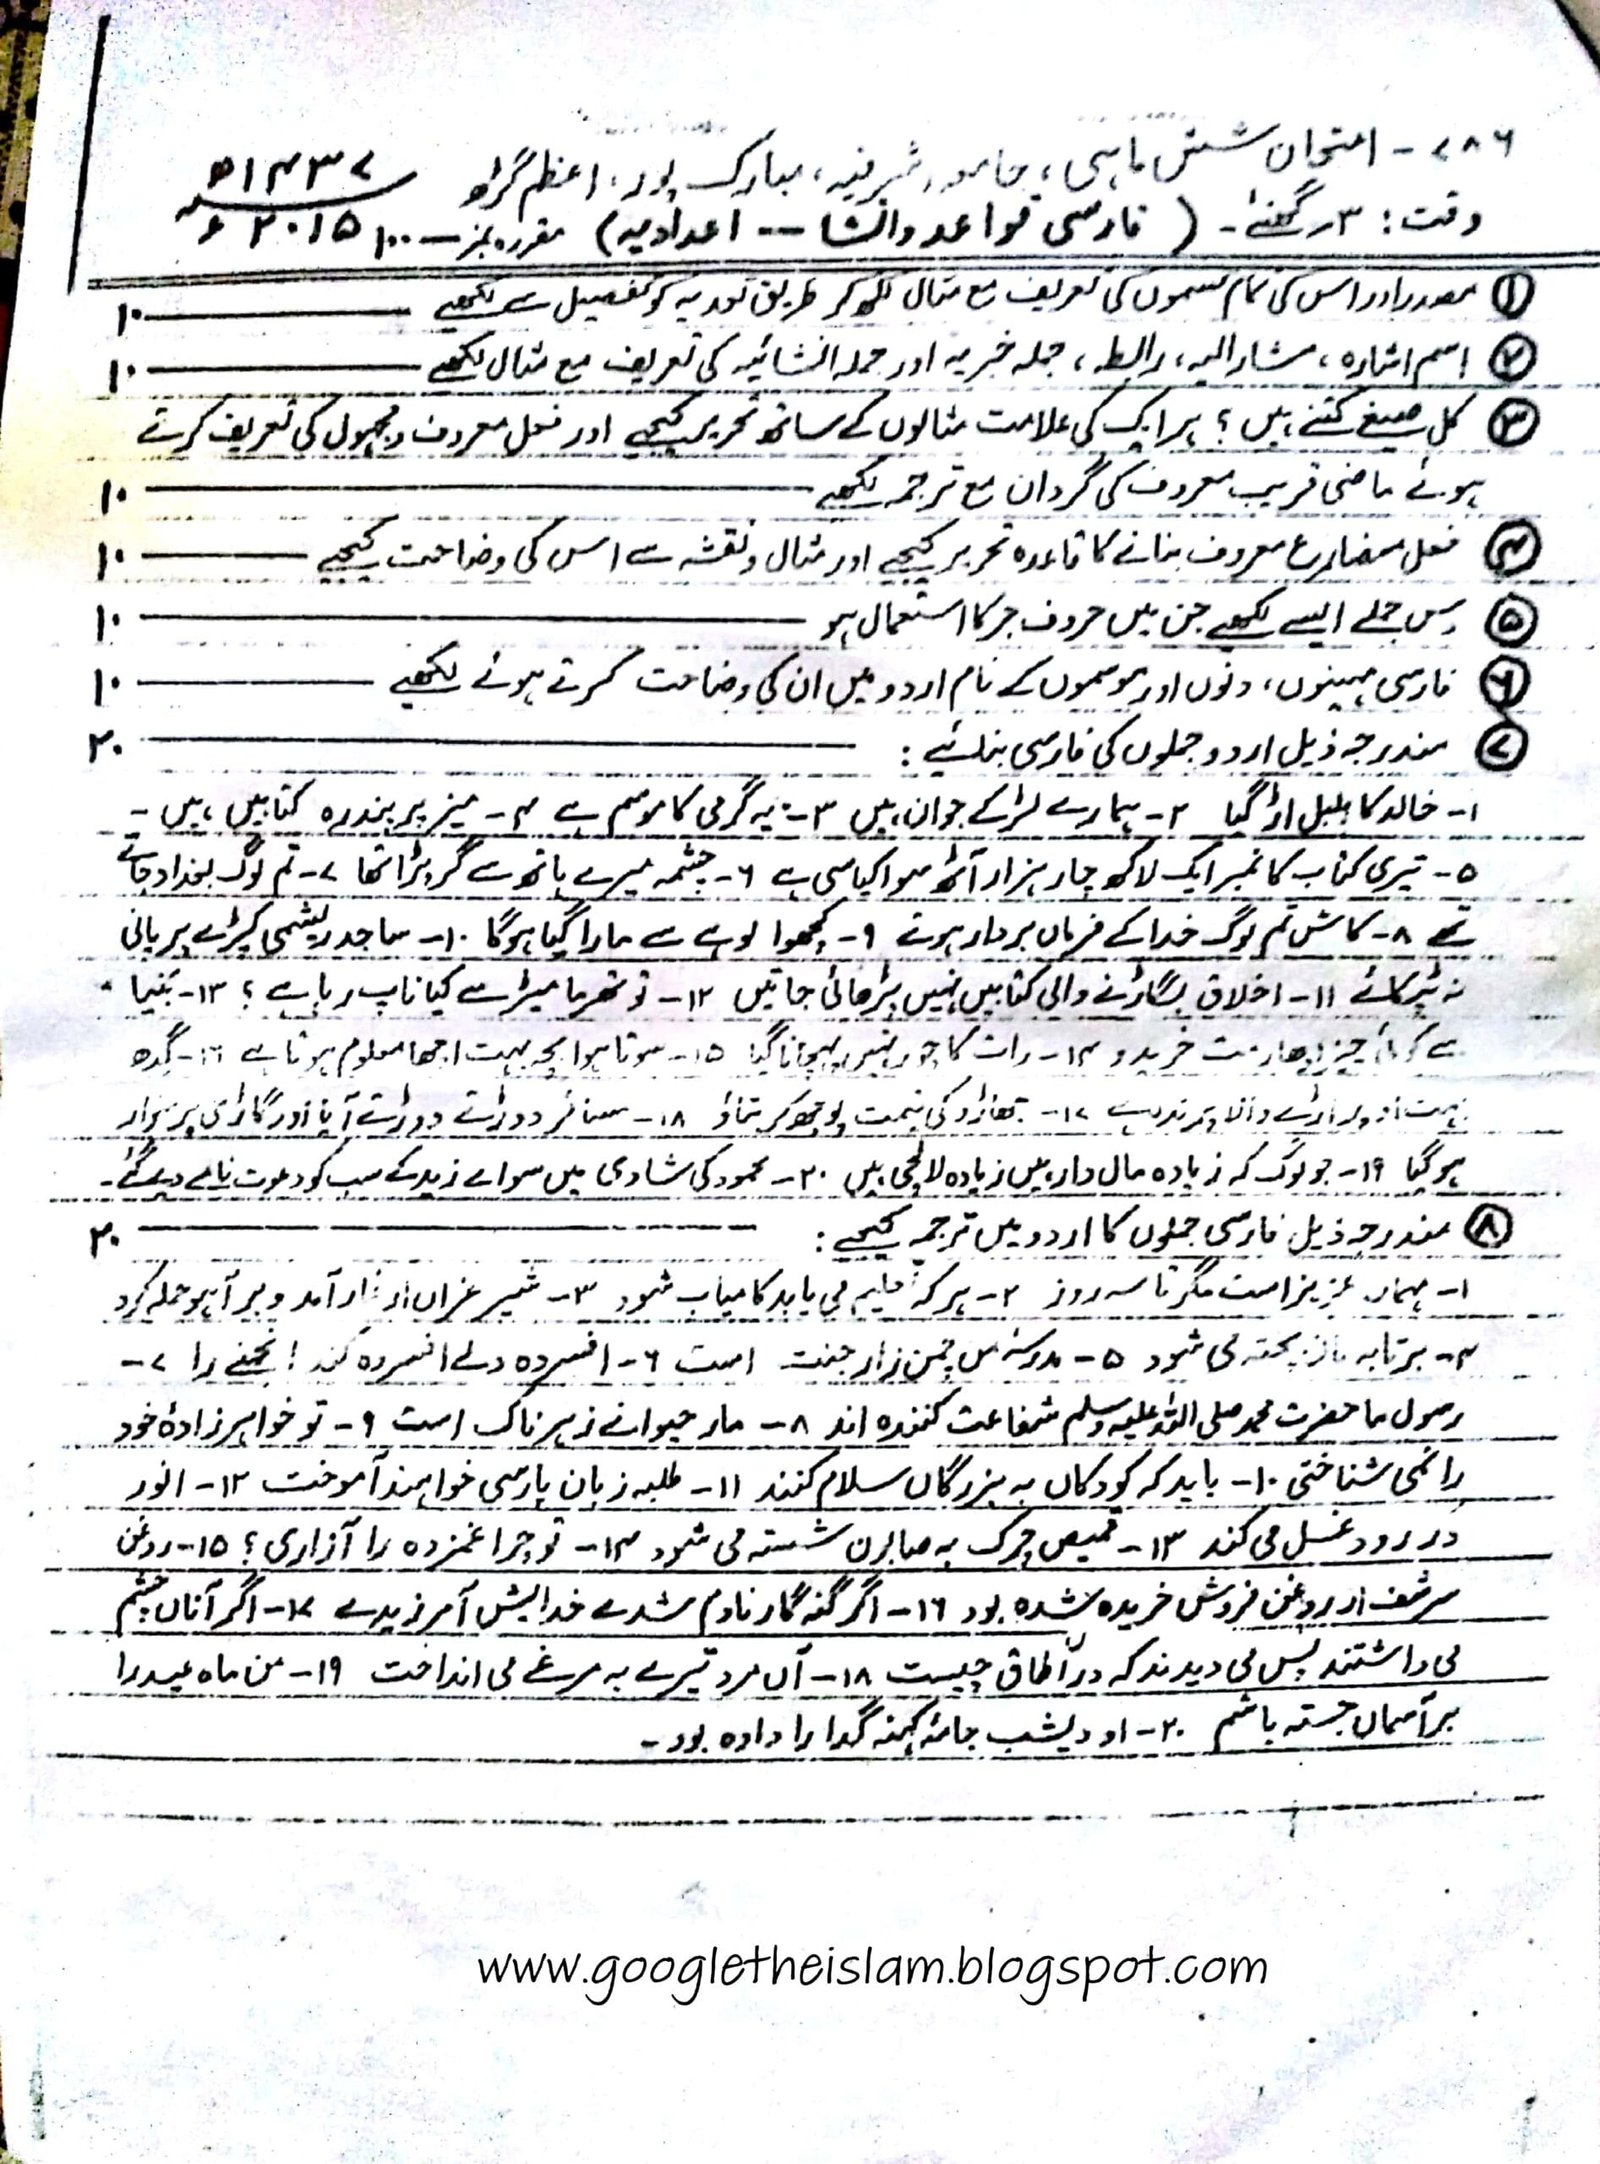 ۷۸۶ - امتحان شش ماہی، جامعہ اشرفیہ، مبارک پور، اعظم گڑھ ۱۴۳۷ھ
وقت: ۳ر گھنٹے - (فارسی قواعد وانشا -- اعدادیہ) مقررہ نمبر — ۱۰۰ ۲۰۱۵ء
① مصدر اور اس کی تمام قسموں کی تعریف مع مثال لکھ کر طریق تعدیہ کو تفصیل سے لکھیے ۱۰
② اسم اشارہ، مشار الیہ، رابطہ، جملہ خبریہ اور جملہ انشائیہ کی تعریف مع مثال لکھیے ۱۰
③ کل صیغے کتنے ہیں؟ ہر ایک کی علامت مثالوں کے ساتھ تحریر کیجیے اور فعل معروف و مجہول کی تعریف کرتے
ہوئے ماضی قریب معروف کی گردان مع ترجمہ لکھیے ۱۰
④ فعل مضارع معروف بنانے کا قاعدہ تحریر کیجیے اور مثال و نقشہ سے اس کی وضاحت کیجیے ۱۰
⑤ دس جملے ایسے لکھیے جن میں حروف جر کا استعمال ہو ۱۰
⑥ فارسی مہینوں، دنوں اور موسموں کے نام اردو میں ان کی وضاحت کرتے ہوئے لکھیے ۱۰
⑦ مندرجہ ذیل اردو جملوں کی فارسی بنائیے: ۲۰
۱- خالد کا بلبل اڑ گیا ۲- ہمارے لڑکے جوان ہیں ۳- یہ گرمی کا موسم ہے ۴- میز پر پندرہ کتابیں ہیں -
۵- تیری کتاب کا نمبر ایک لاکھ چار ہزار آٹھ سو اکیاسی ہے ۶- چشمہ میرے ہاتھ سے گر پڑا تھا ۷- تم لوگ بغداد جاتے
تھے ۸- کاش تم لوگ خدا کے فرماں بردار ہوتے ۹- کچھوا لوہے سے مارا گیا ہوگا ۱۰- ساجد ریشمی کپڑے پر پانی
نہ ٹپکائے ۱۱- اخلاق بگاڑنے والی کتابیں نہیں پڑھائی جاتیں ۱۲- تو تھرمامیٹر سے کیا ناپ رہا ہے؟ ۱۳- بنیا
سے کوئی چیز ادھار مت خریدو ۱۴- رات کا چور نہیں پہچانا گیا ۱۵- سوتا ہوا بچہ بہت اچھا معلوم ہوتا ہے ۱۶- گدھ
بہت اوپر اڑنے والا پرندہ ہے ۱۷- جھاڑو کی قیمت پوچھ کر بتاؤ ۱۸- مسافر دوڑتے دوڑتے آیا اور گاڑی پر سوار
ہو گیا ۱۹- جو لوگ کہ زیادہ مال دار ہیں زیادہ لالچی ہیں ۲۰- محمود کی شادی میں سواے زید کے سب کو دعوت نامے دیے گئے -
⑧ مندرجہ ذیل فارسی جملوں کا اردو میں ترجمہ کیجیے: ۲۰
۱- مہماں عزیز است مگر تا سہ روز ۲- ہر کہ تعلیم می یابد کامیاب شود ۳- شیر غراں از غار آمد و بر آہو حملہ کرد
۴- بر تابہ نان پختہ می شود ۵- مدرسۂ من چمن زار جنت است ۶- افسردہ دلے افسردہ کند انجمنے را ۷-
رسول ما حضرت محمد صلی اللہ علیہ وسلم شفاعت کنندہ اند ۸- مار حیوانے زہرناک است ۹- تو خواہر زادۂ خود
را نمی شناختی ۱۰- باید کہ کودکاں بہ بزرگاں سلام کنند ۱۱- طلبہ زبان پارسی خواہند آموخت ۱۲- انور
در رود غسل می کند ۱۳- قمیص چرک بہ صابون شستہ می شود ۱۴- تو چرا غمزدہ را آزاری؟ ۱۵- روغن
سرشف از روغن فروش خریدہ شدہ بود ۱۶- اگر گنہ گار نادم شدے خدایش آمرزیدے ۱۷- اگر آناں چشم
می داشتند پس می دیدند کہ در آں طاق چیست ۱۸- آں مرد تیرے بہ مرغے می انداخت ۱۹- من ماہ عید را
بر آسماں جستہ باشم ۲۰- او دیشب جامۂ کہنہ گدا را دادہ بود -
www.googletheislam.blogspot.com